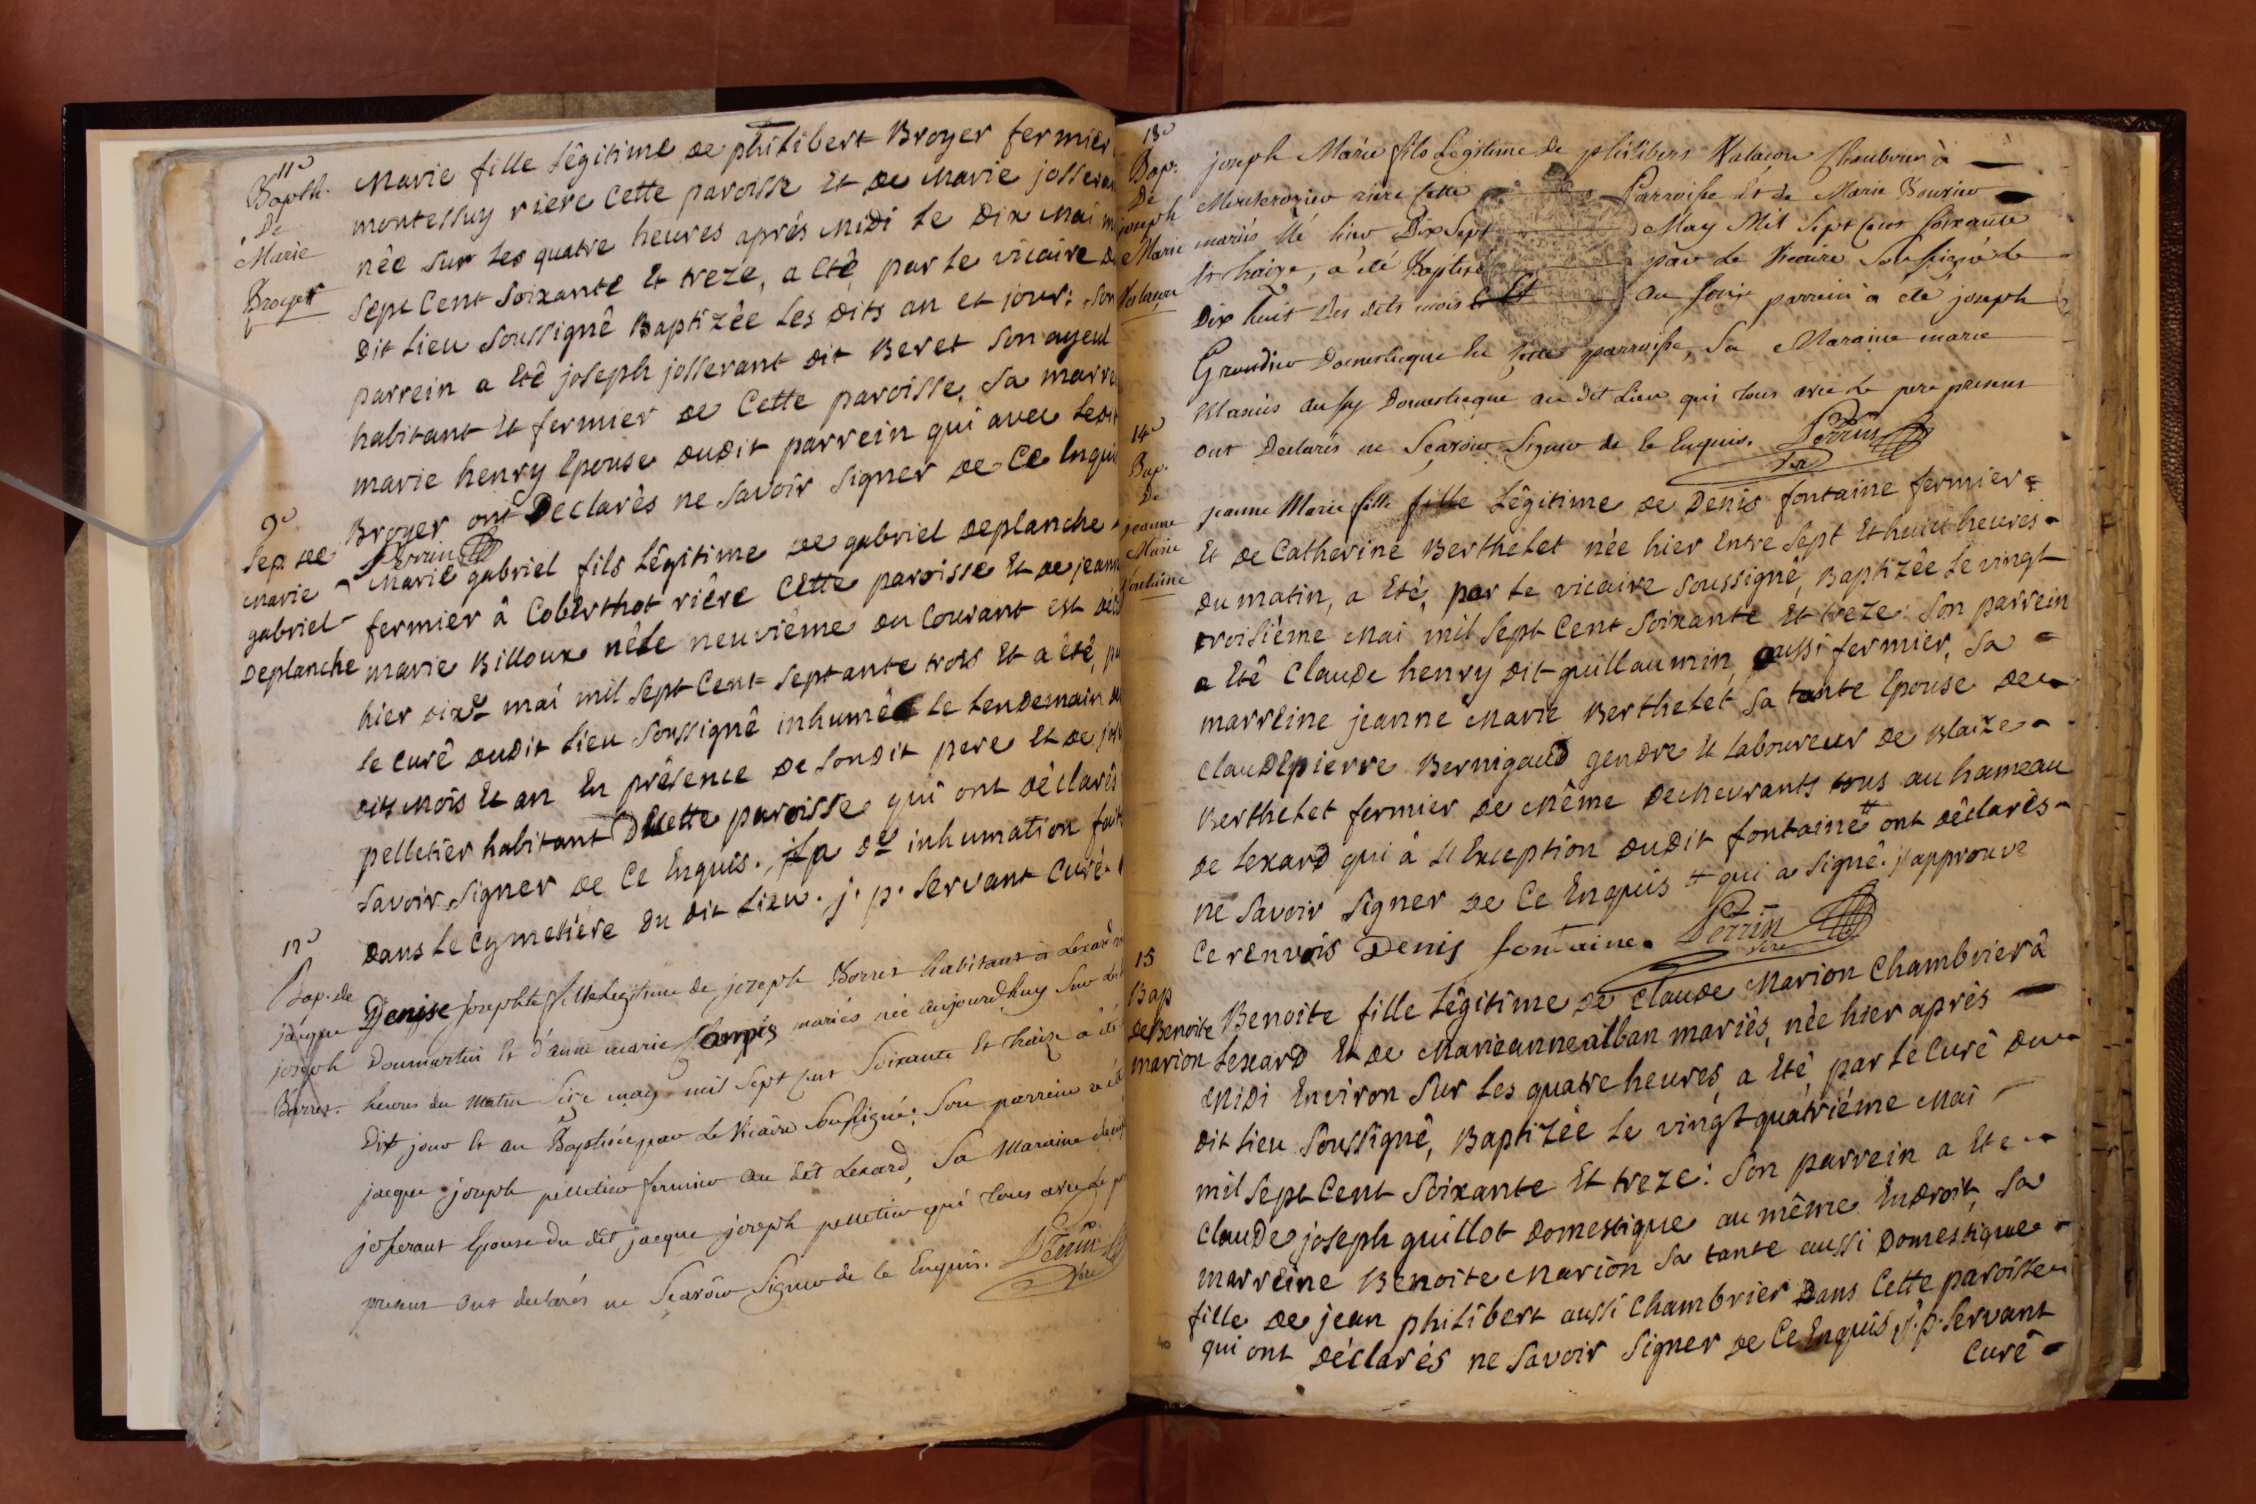 11e
Bapth.
De
Marie
Broyer
Marie fille Légitime de philibert Broyer fermier
montessuy riere Cette paroisse Et de Marie josseran
née sur les quatre heures aprés Midi le Dix Mai m
sept Cent soixante Et treze, a été par le vicaire d
Dit Lieu soussigné Baptizée les dits an et jour: son
parrein a Eté joseph josserant dit Beret son ayeul
habitant Et fermier de Cette paroisse, sa marre
marie henry Epouse dudit parrein qui avec ledit
Broyer ont Declarés ne savoir signer de Ce Enquis
Perrin
9e
Sep. de
Marie
gabriel
Deplanche
Marie gabriel fils Légitime de gabriel Deplanche
fermier â Coberthot riére Cette paroisse Et de jeann
marie Billoux né le neuviéme du Courant est décé
hier dixe mai mil sept Cent septante trois Et a été, pa
le Curé dudit Lieu soussigné inhumé le lendemain d
dits Mois Et an En présence de sondit pere Et de jos
pelletier habitant De Cette paroisse qui ont déclarés
savoir signer de Ce Enquis. La de inhumation fait
Dans le Cymetiére du dit Lieu. j. p. Servant Curé.
12e
Bap. de
jacque
joseph
Borret.
Denise Josephte fille Legitime de joseph Borret habitant à Lexard
Dommartin Et d'anne marie mariés née aujourdhuy sur les
heures du matin Seize may mil Sept cent Soixante Et traize a été
Dit jour Et an Baptisée par Le Vicaire Soussigné; Son parrein a été
jacque joseph pelletier fermier au dit Lexard, Sa Maraine
josserant Epouse du dit jacque joseph pelletier qui tous avec le pe
present Ont declarés ne Scavoir Signer de Ce Enquis. Perrin
Vire
13e
Bap.
De
joseph
Marie
Valacon
joseph Marie fils Légitime De philibert Valacon Chambrier à
riere Cette Parroisse Et de Marie
mariés Né hier Dix Sept May Mil Sept Cent Soixante
Et traize, a été Baptisé par Le Vicaire Soussigné le
Dix huit Des dits mois Et An Son parrein a été joseph
Grandin Domestique En Cette parroisse, Sa Maraine marie
aussy Domestique au Dit Lieu qui tous avec Le pere present
Ont Declarés ne Scavoir Signer de Ce Enquis. Perrin
Vire
14e
Bap.
De
jeanne
Marie
fontaine
jeanne Marie fille fille Légitime de Denis fontaine fermier
Et de Catherine Berthelet née hier Entre Sept Et huit heures
du matin, a Eté, par le vicaire soussigné, Baptizée le vingt
troisiéme Mai mil sept Cent soixante Et treze: son parrein
a Eté Claude henry dit guillaumin, aussi fermier, sa
marreine jeanne Marie Berthelet sa tante Epouse de
Claudepierre Bernigaud gendre Et laboureur de Blaize
Berthelet fermier de Même Demeurants tous au hameau
de Lexard qui â L'Exception dudit fontaine # ont déclarés
ne savoir signer de Ce Enquis # qui a signé. j'approuve
Ce renvois Denis fontaine. Perrin
Vire
15
Bap
de Benoite
Marion
Benoite fille Légitime de Claude Marion Chambrier â
Lexard Et de Marieanne alban mariés, née hier aprés
Midi Environ sur les quatre heures, a Eté, par le Curé du
dit Lieu soussigné, Baptizée le vingt quatriéme Mai
mil sept Cent soixante Et treze: son parrein a Eté
Claude joseph guillot Domestique au même Endroit, sa
marreine Benoite Marion sa tante aussi Domestique
fille de jean philibert aussi Chambrier Dans Cette paroisse
qui ont déclarés ne savoir signer de Ce Enquis j. p. Servant
Curé